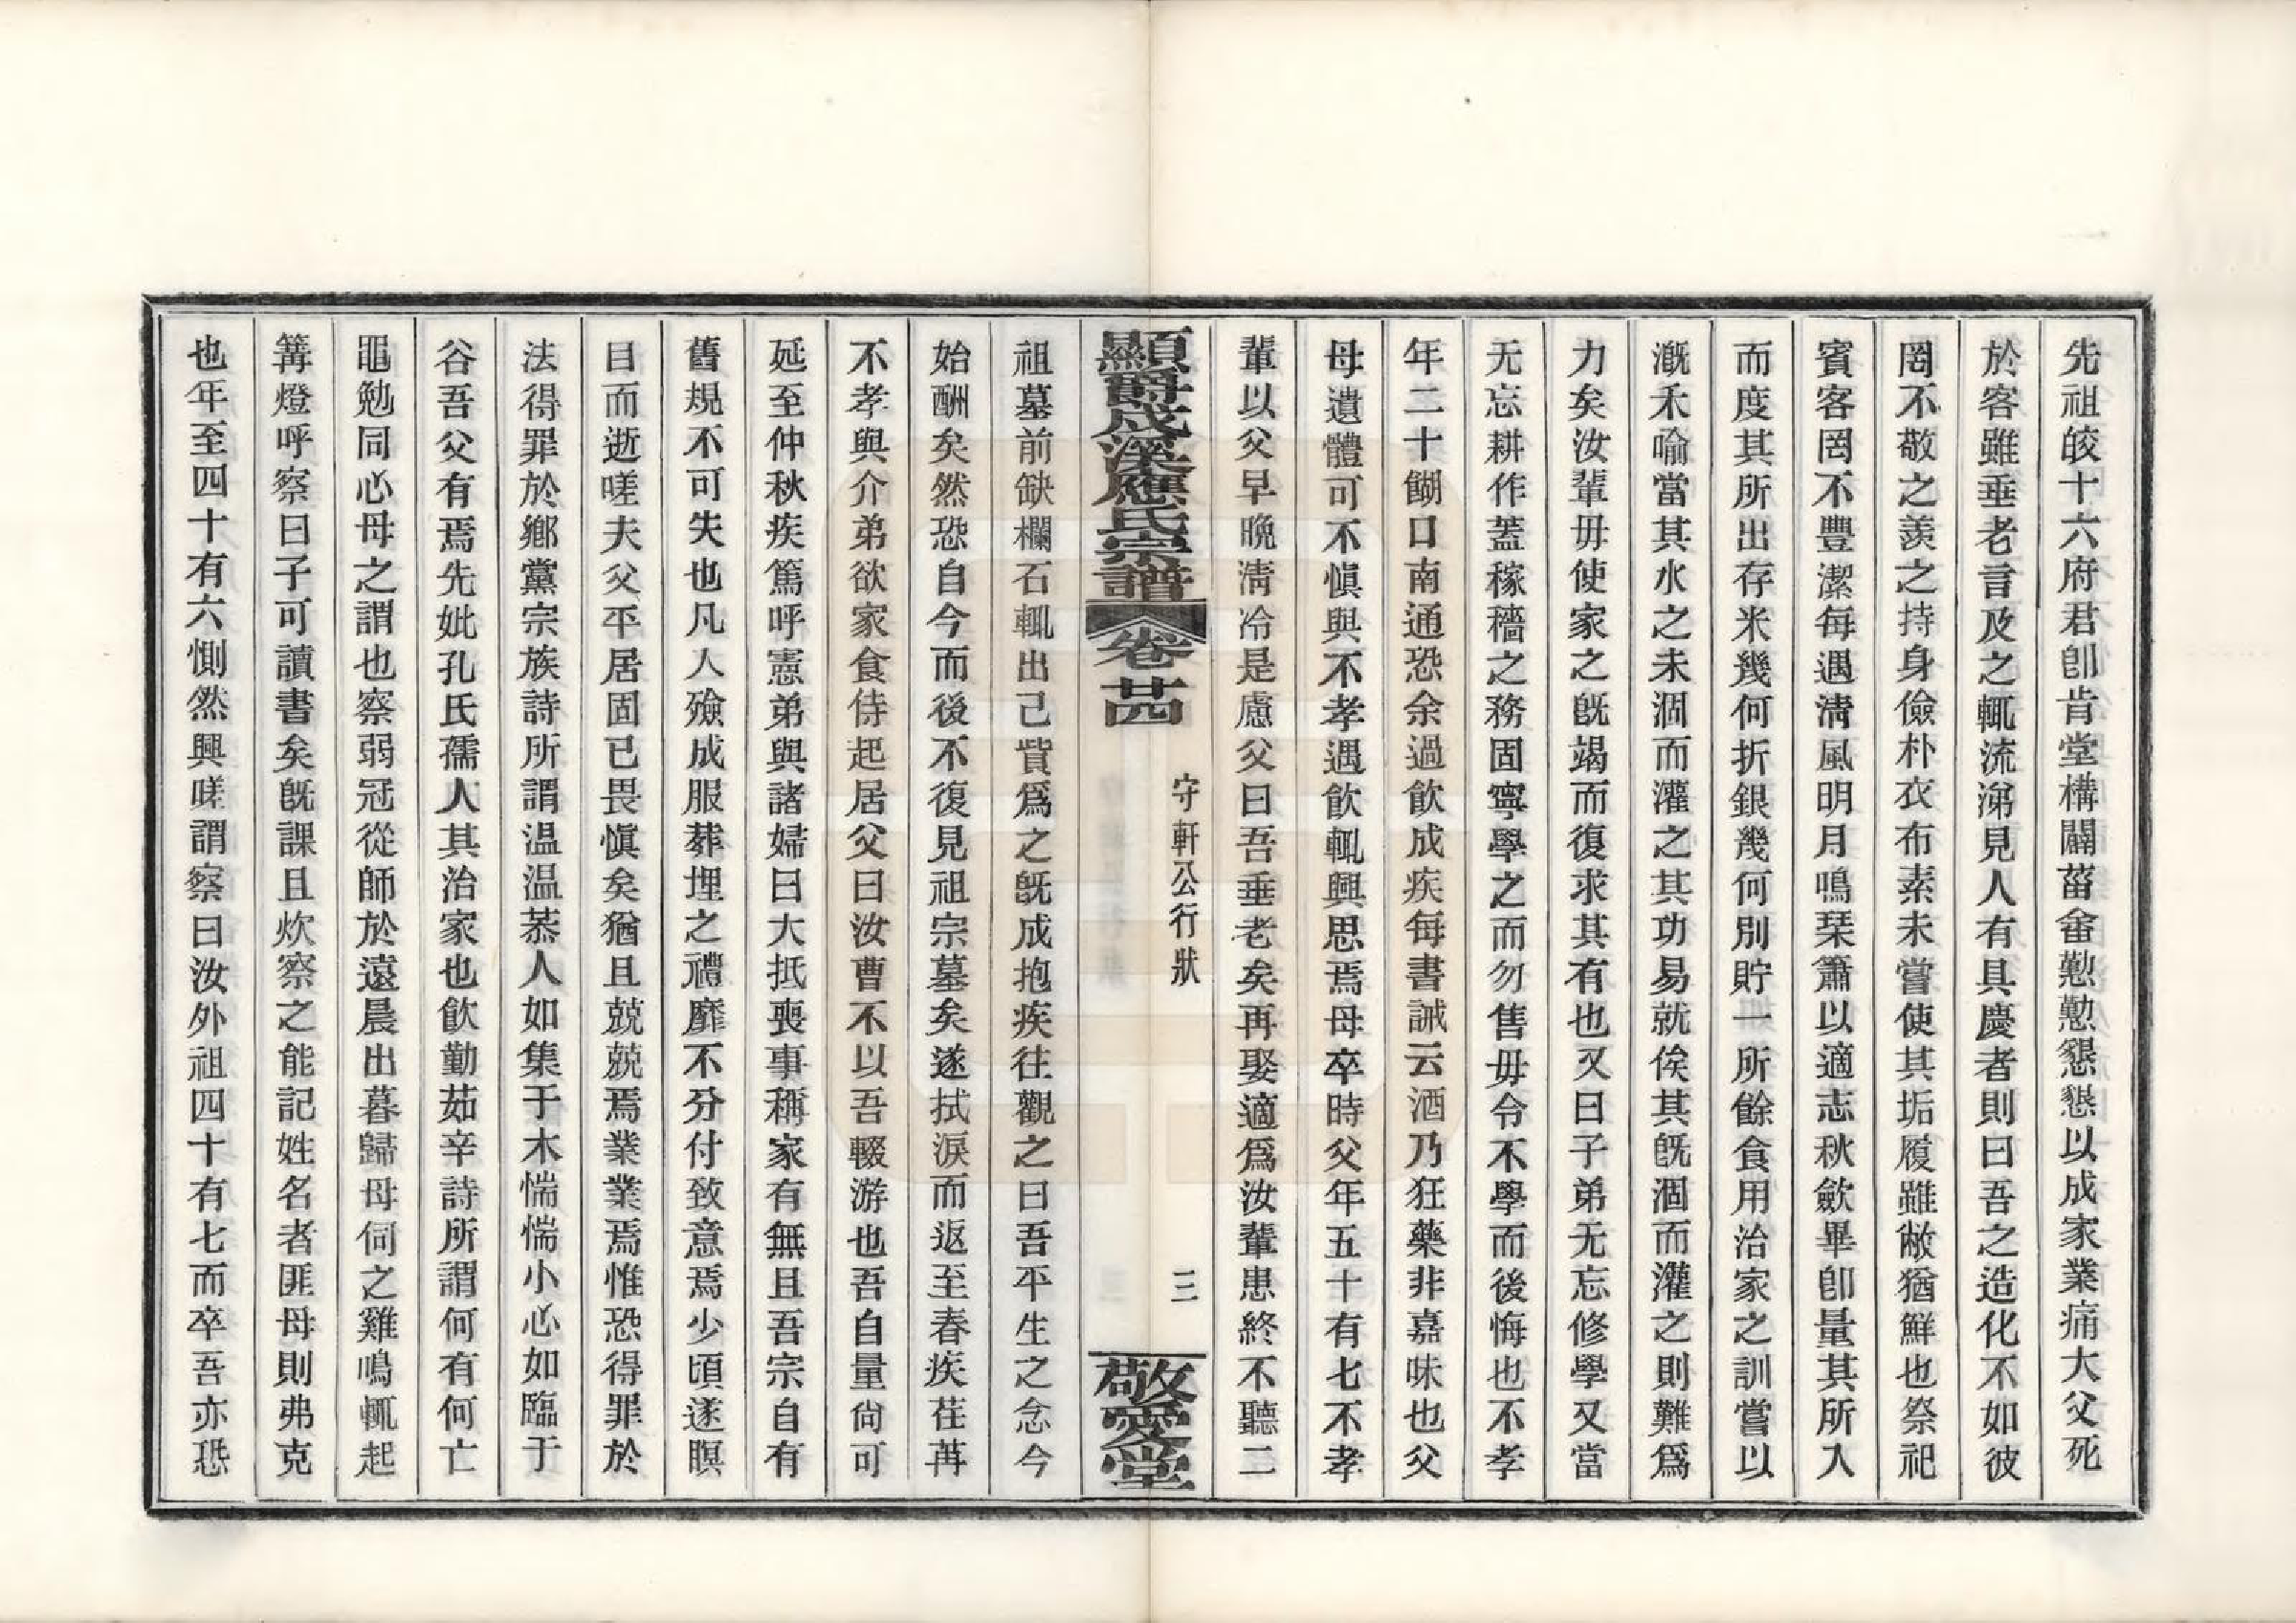 先祖皎十六府君卽肯堂構闢菑畬懃懃懇懇以成家業痛大父死
於客雖垂老言及之輒流涕見人有具慶者則曰吾之造化不如彼
罔不敬之羨之持身儉朴衣布素未嘗使其垢履雖敝猶鮮也祭祀
賓客罔不豐潔每遇清風明月鳴琹簫以適志秋歛畢卽量其所入
而度其所出存米幾何折銀幾何別貯一所餘食用治家之訓嘗以
漑禾喻當其水之未涸而灌之其功易就俟其旣涸而灌之則難爲
力矣汝輩毋使家之旣竭而復求其有也又曰子弟无忘修學又當
无忘耕作蓋稼穡之務固寧學之而勿售毋令不學而後悔也不孝
年二十餬口南通恐余過飮成疾每書誡云酒乃狂藥非嘉味也父
母遺體可不愼與不孝遇飮輒興思焉母卒時父年五十有七不孝
輩以父早晚淸冷是慮父曰吾垂老矣再娶適爲汝輩患終不聽二
顯爵成溪應氏宗譜 卷廿四 守軒公行狀 三 敬愛堂
祖墓前缺欄石輒出己貲爲之旣成抱疾往觀之曰吾平生之念今
始酬矣然恐自今而後不復見祖宗墓矣遂拭淚而返至春疾荏苒
不孝與介弟欲家食侍起居父曰汝曹不以吾輟游也吾自量尙可
延至仲秋疾篤呼憲弟與諸婦曰大抵喪事稱家有無且吾宗自有
舊規不可失也凡人殮成服葬埋之禮靡不分付致意焉少頃遂瞑
目而逝嗟夫父平居固已畏愼矣猶且兢兢焉業業焉惟恐得罪於
法得罪於鄉黨宗族詩所謂温温恭人如集于木惴惴小心如臨于
谷吾父有焉先妣孔氏孺人其治家也飮勤茹辛詩所謂何有何亡
黽勉同心母之謂也察弱冠從師於遠晨出暮歸母伺之雞鳴輒起
篝燈呼察曰子可讀書矣旣課且炊察之能記姓名者匪母則弗克
也年至四十有六惻然興嗟謂察曰汝外祖四十有七而卒吾亦恐